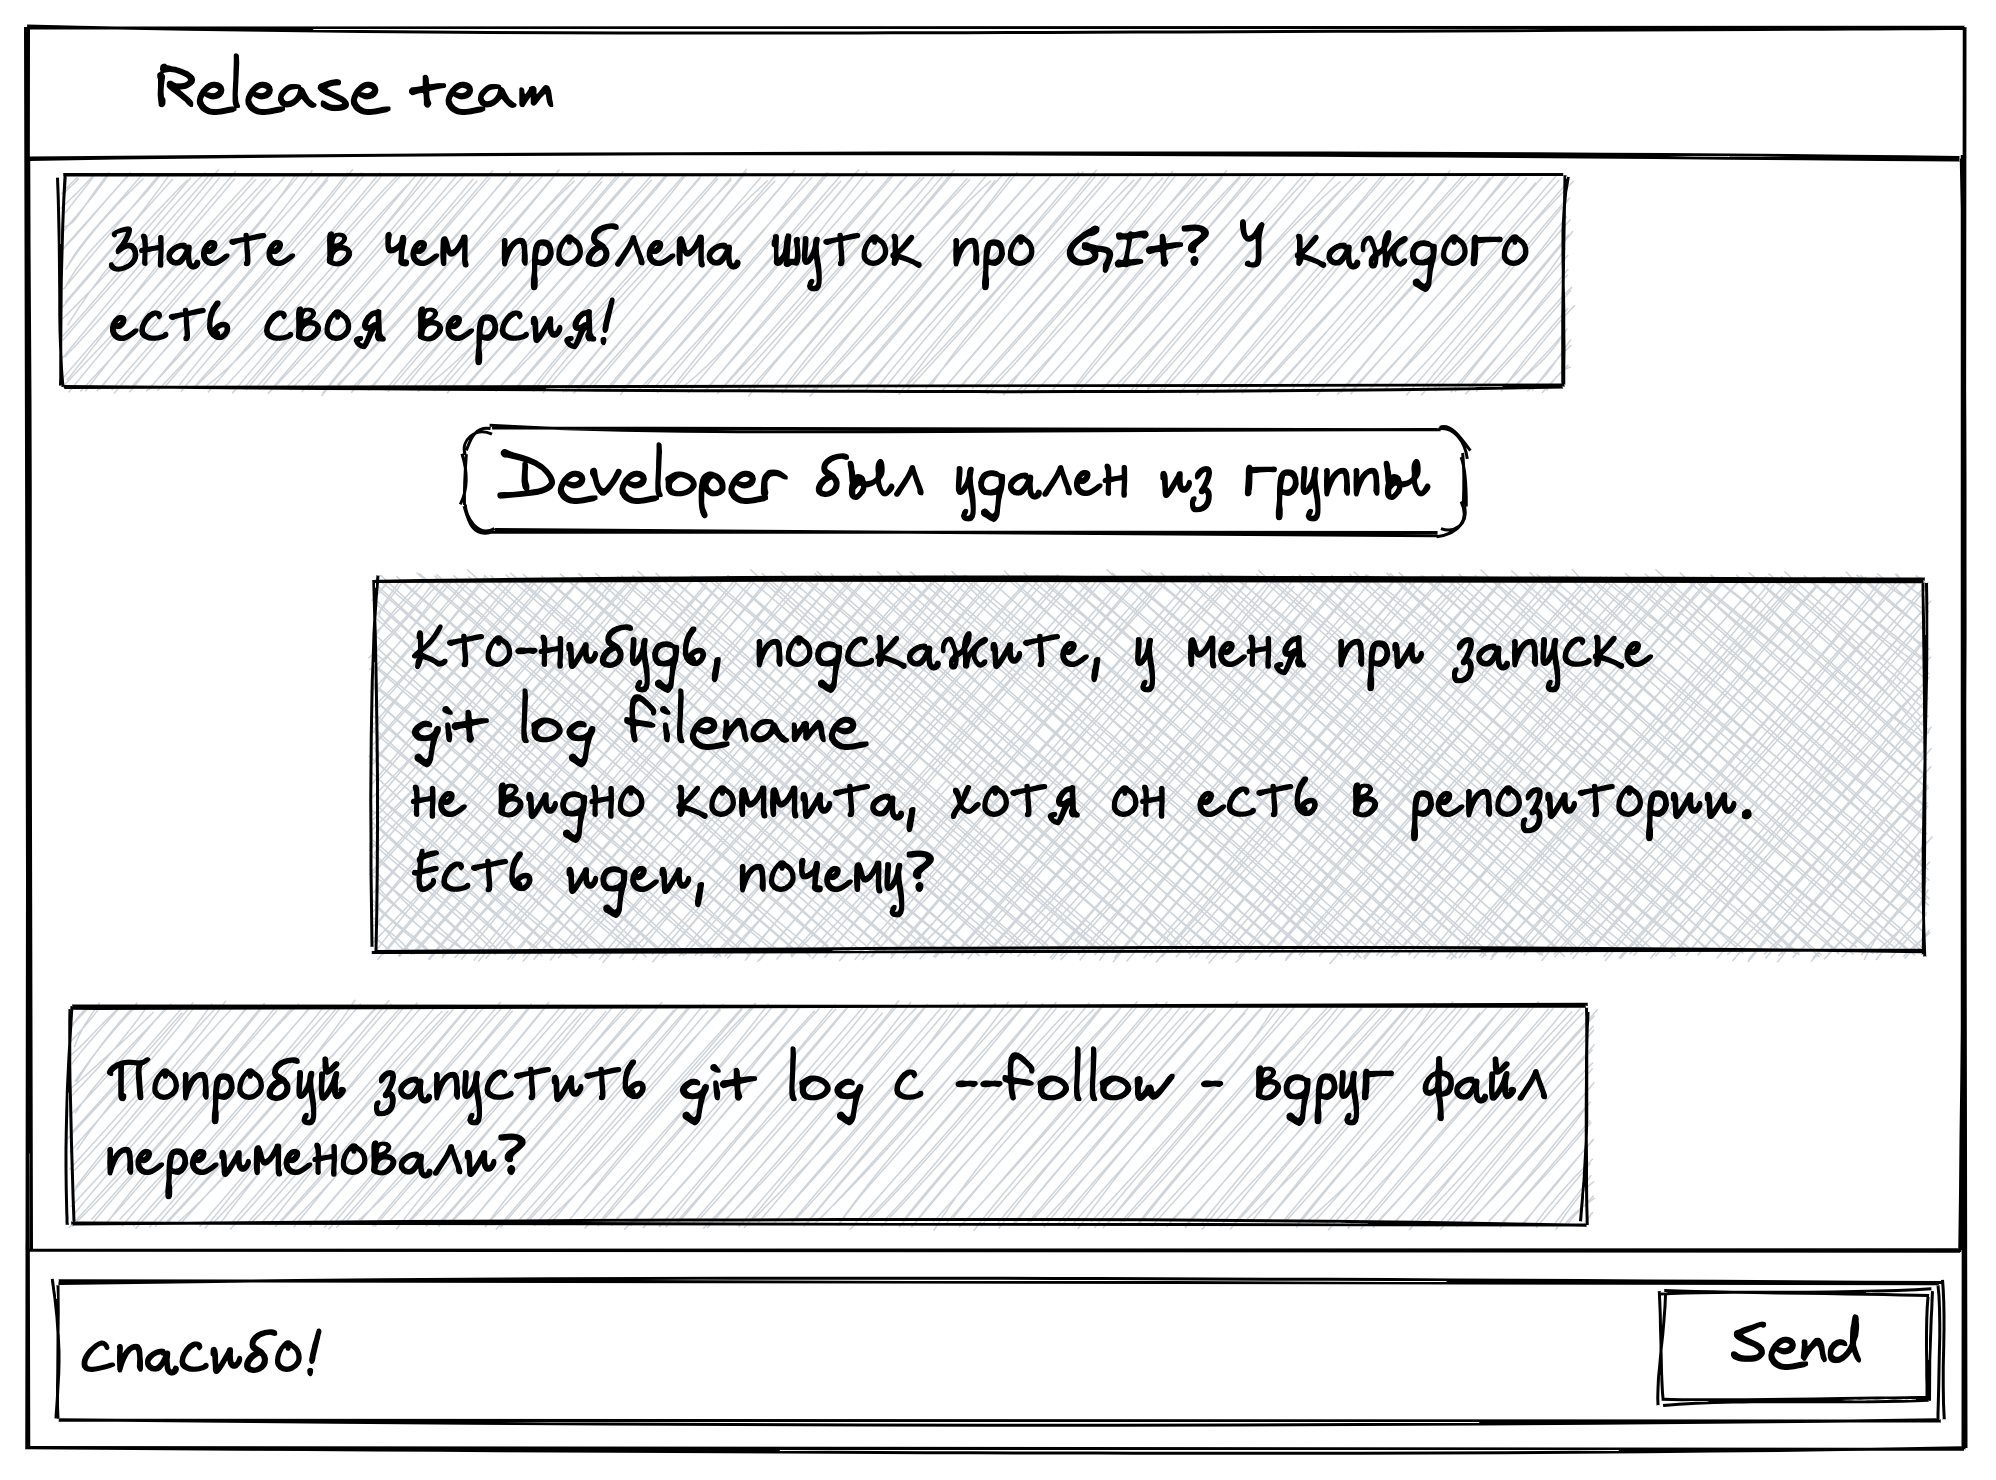 Release team
Знаете в чем проблема шуток про GIt? У каждого
есть своя версия!
Developer был удален из группы
Кто-нибудь, подскажите, у меня при запуске
git log filename
не видно коммита, хотя он есть в репозитории.
Есть идеи, почему?
Попробуй запустить git log с --follow - вдруг файл
переименовали?
спасибо!
Send